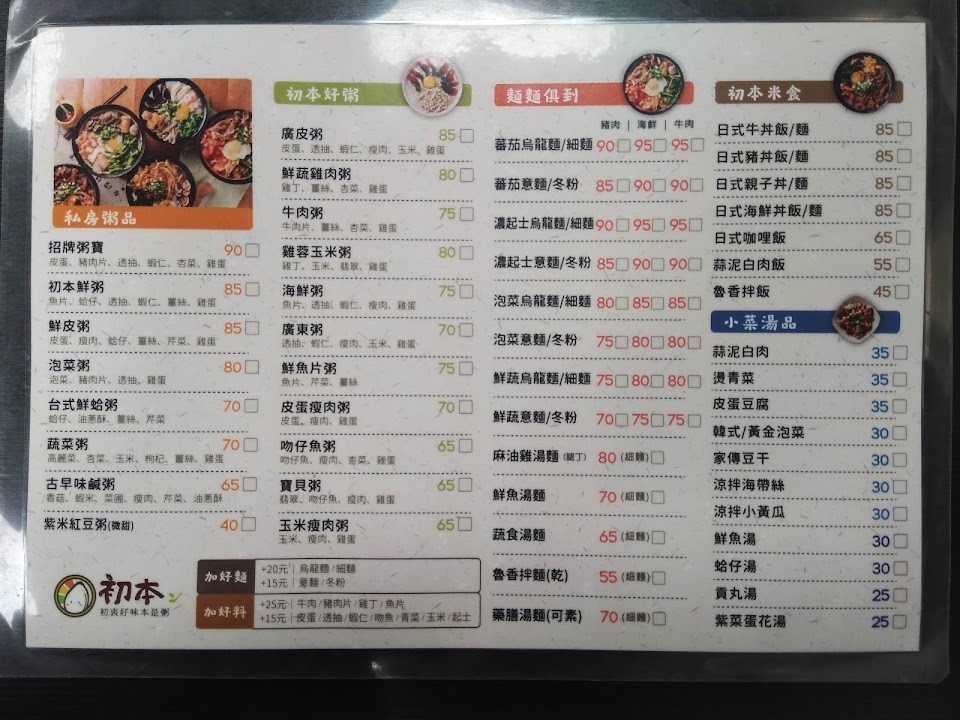 私房粥品
招牌粥寶 90
皮蛋、豬肉片、透抽、蝦仁、杏菜、雞蛋
初本鮮粥 85
魚片、蛤仔、透抽、蝦仁、薑絲、雞蛋
鮮皮粥 85
皮蛋、瘦肉、蛤仔、薑絲、芹菜、雞蛋
泡菜粥 80
泡菜、豬肉片、透抽、雞蛋
台式鮮蛤粥 70
蛤仔、油蔥酥、薑絲、芹菜
蔬菜粥 70
高麗菜、杏菜、玉米、枸杞、薑絲、雞蛋
古早味鹹粥 65
香菇、蝦米、菜圃、瘦肉、芹菜、油蔥酥
紫米紅豆粥(微甜) 40
初本
初衷好味本是粥
初本好粥
廣皮粥 85
皮蛋、透抽、蝦仁、瘦肉、玉米、雞蛋
鮮蔬雞肉粥 80
雞丁、薑絲、杏菜、雞蛋
牛肉粥 75
牛肉片、薑絲、杏菜、雞蛋
雞蓉玉米粥 80
雞丁、玉米、翡翠、雞蛋
海鮮粥 75
魚片、透抽、蝦仁、瘦肉、雞蛋
廣東粥 70
透抽、蝦仁、瘦肉、玉米、雞蛋
鮮魚片粥 75
魚片、芹菜、薑絲
皮蛋瘦肉粥 70
皮蛋、瘦肉、雞蛋
吻仔魚粥 65
吻仔魚、瘦肉、杏菜、雞蛋
寶貝粥 65
翡翠、吻仔魚、瘦肉、雞蛋
玉米瘦肉粥 65
玉米、瘦肉、雞蛋
加好麵 +20元｜烏龍麵/細麵
+15元｜意麵/冬粉
加好料 +25元｜牛肉/豬肉片/雞丁/魚片
+15元｜皮蛋/透抽/蝦仁/吻魚/青菜/玉米/起士
麵麵俱到
豬肉｜海鮮｜牛肉
蕃茄烏龍麵/細麵 90 95 95
蕃茄意麵/冬粉 85 90 90
濃起士烏龍麵/細麵 90 95 95
濃起士意麵/冬粉 85 90 90
泡菜烏龍麵/細麵 80 85 85
泡菜意麵/冬粉 75 80 80
鮮蔬烏龍麵/細麵 75 80 80
鮮蔬意麵/冬粉 70 75 75
麻油雞湯麵(腿丁) 80 (細麵)
鮮魚湯麵 70 (細麵)
蔬食湯麵 65 (細麵)
魯香拌麵(乾) 55 (細麵)
藥膳湯麵(可素) 70 (細麵)
初本米食
日式牛丼飯/麵 85
日式豬丼飯/麵 85
日式親子丼/麵 85
日式海鮮丼飯/麵 85
日式咖哩飯 65
蒜泥白肉飯 55
魯香拌飯 45
小菜湯品
蒜泥白肉 35
燙青菜 35
皮蛋豆腐 35
韓式/黃金泡菜 30
家傳豆干 30
涼拌海帶絲 30
涼拌小黃瓜 30
鮮魚湯 30
蛤仔湯 30
貢丸湯 25
紫菜蛋花湯 25